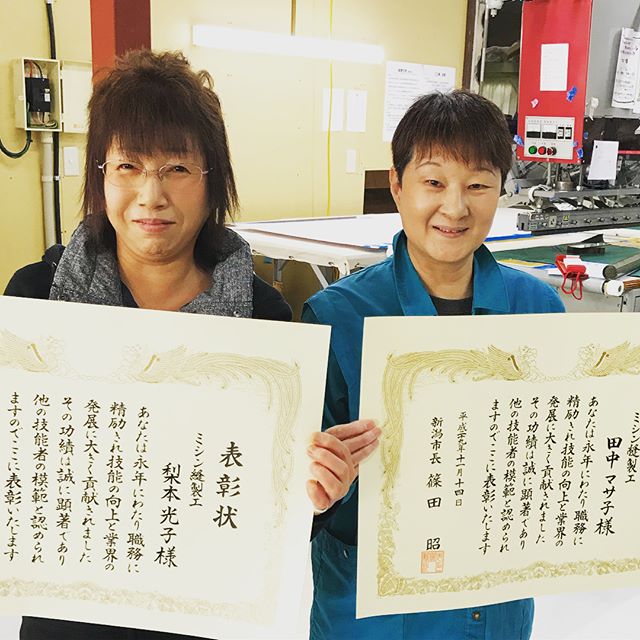 表彰状
ミシン縫製工
梨本光子様
あなたは永年にわたり職務に
精励され技能の向上と業界の
発展に大きく貢献されました
その功績は誠に顕著であり
他の技能者の模範と認められ
ますのでここに表彰いたします
ミシン縫製工
田中マサ子様
あなたは永年にわたり職務に
精励され技能の向上と業界の
発展に大きく貢献されました
その功績は誠に顕著であり
他の技能者の模範と認められ
ますのでここに表彰いたします
平成二十九年十一月十四日
新潟市長 篠田 昭